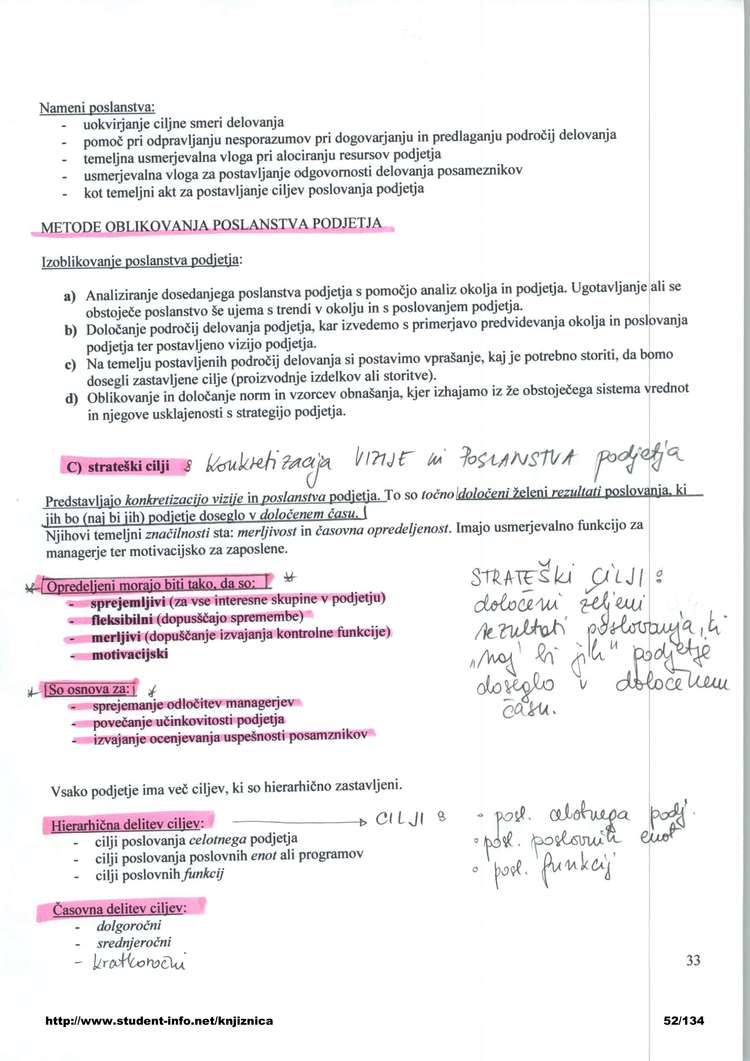 Nameni poslanstva:
- uokvirjanje ciljne smeri delovanja
- pomoč pri odpravljanju nesporazumov pri dogovarjanju in predlaganju področij delovanja
- temeljna usmerjevalna vloga pri alociranju resursov podjetja
- usmerjevalna vloga za postavljanje odgovornosti delovanja posameznikov
- kot temeljni akt za postavljanje ciljev poslovanja podjetja
METODE OBLIKOVANJA POSLANSTVA PODJETJA
Izoblikovanje poslanstva podjetja:
a) Analiziranje dosedanjega poslanstva podjetja s pomočjo analiz okolja in podjetja. Ugotavljanje ali se
obstoječe poslanstvo še ujema s trendi v okolju in s poslovanjem podjetja.
b) Določanje področij delovanja podjetja, kar izvedemo s primerjavo predvidevanja okolja in poslovanja
podjetja ter postavljeno vizijo podjetja.
c) Na temelju postavljenih področij delovanja si postavimo vprašanje, kaj je potrebno storiti, da bomo
dosegli zastavljene cilje (proizvodnje izdelkov ali storitve).
d) Oblikovanje in določanje norm in vzorcev obnašanja, kjer izhajamo iz že obstoječega sistema vrednot
in njegove usklajenosti s strategijo podjetja.
C) strateški cilji : konkretizacija VIZIJE in POSLANSTVA podjetja
Predstavljajo konkretizacijo vizije in poslanstva podjetja. To so točno določeni želeni rezultati poslovanja, ki
jih bo (naj bi jih) podjetje doseglo v določenem času.
Njihovi temeljni značilnosti sta: merljivost in časovna opredeljenost. Imajo usmerjevalno funkcijo za
managerje ter motivacijsko za zaposlene.
* Opredeljeni morajo biti tako, da so: *
- sprejemljivi (za vse interesne skupine v podjetju)
- fleksibilni (dopuščajo spremembe)
- merljivi (dopuščanje izvajanja kontrolne funkcije)
- motivacijski
STRATEŠKI CILJI :
določeni željeni
rezultati poslovanja, ki
"naj bi jih" podjetje
doseglo v določenem
času.
* So osnova za: *
- sprejemanje odločitev managerjev
- povečanje učinkovitosti podjetja
- izvajanje ocenjevanja uspešnosti posamznikov
Vsako podjetje ima več ciljev, ki so hierarhično zastavljeni.
Hierarhična delitev ciljev: → CILJI :
- cilji poslovanja celotnega podjetja
- cilji poslovanja poslovnih enot ali programov
- cilji poslovnih funkcij
◦ posl. celotnega podj.
◦ posl. poslovnih enot
◦ posl. funkcij
Časovna delitev ciljev:
- dolgoročni
- srednjeročni
- kratkoročni
33
http://www.student-info.net/knjiznica 52/134